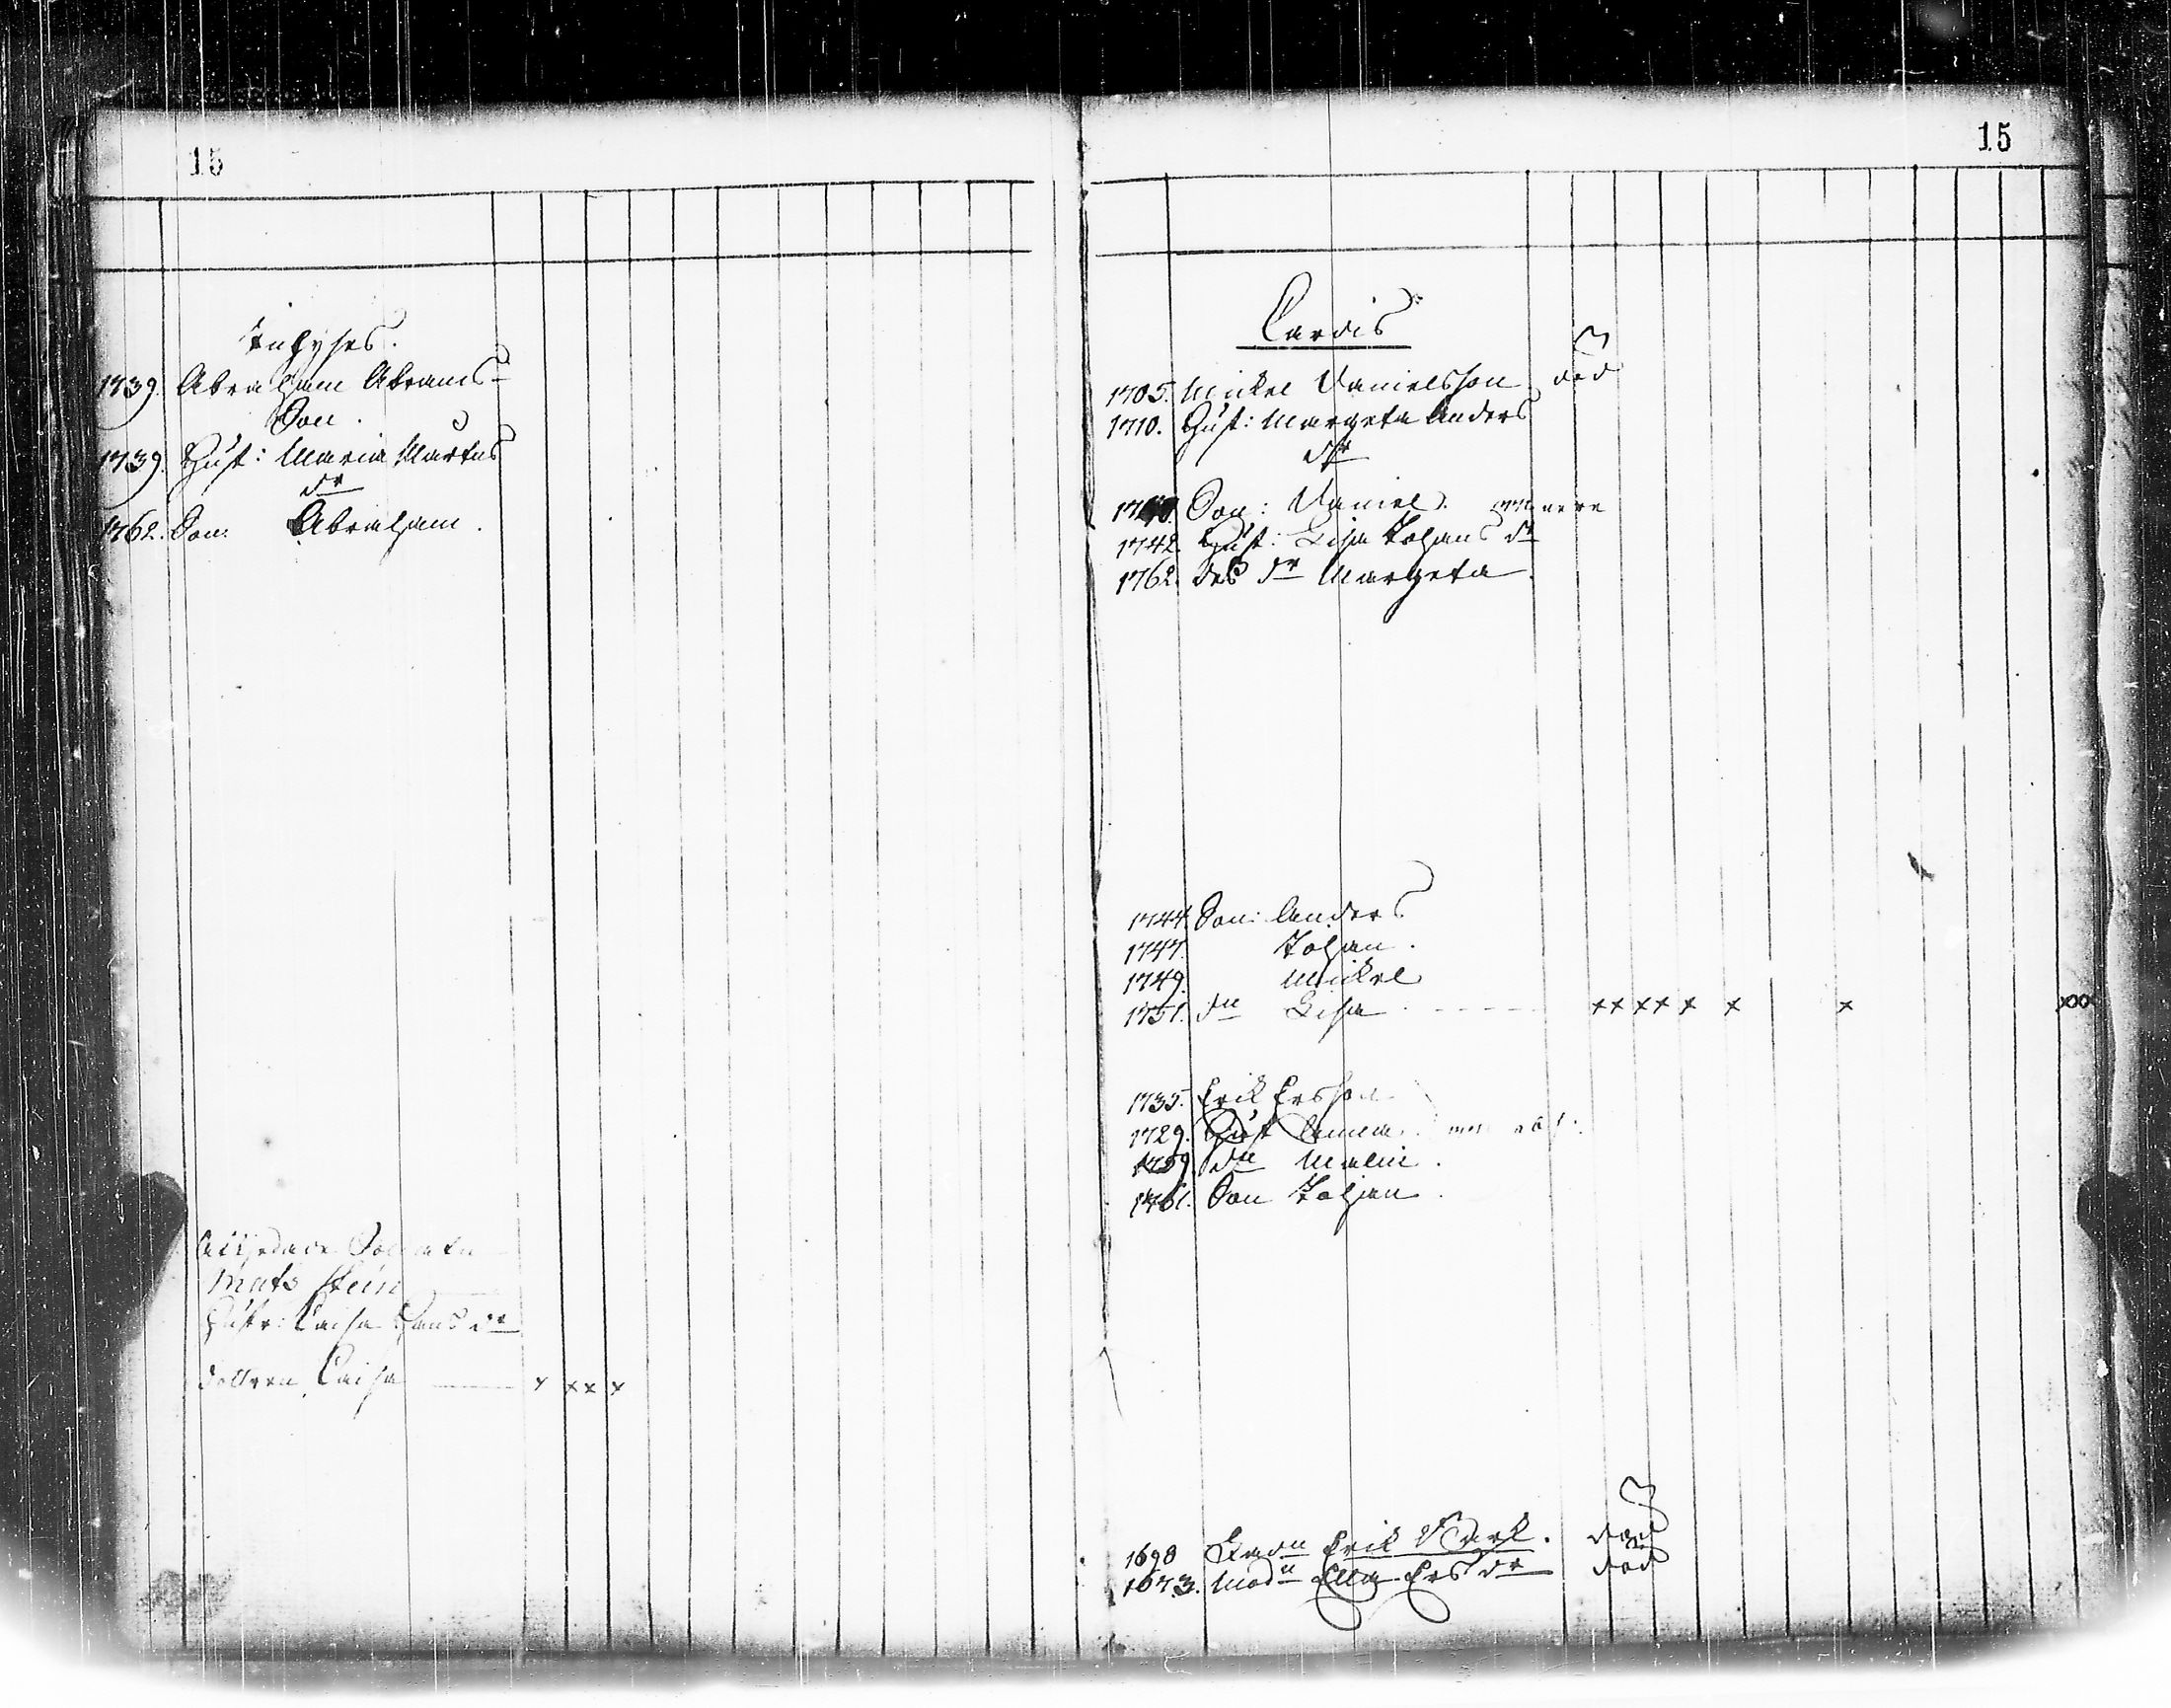 15
Inhyses.
1739. Abraham Abrams-
Son.
1739. Hust: Maria Martens
dr
1762. Son: Abraham.
Mats Stein
Hustr: Caisa Hans dr
dottren Caisa x xx x
15
Cardis
1705. Mickel Danielsson död
1710. Hust: Margeta Anders
dr
Son: Daniel.
1742. Hust: Lisa Johans dr
1762. des dr Margeta.
1744. Son: Anders
1747. Johan.
1749. Mickel
1751. dn Lisa xx xx x x x xxx
1735. Erik Ersson
1729. Hust Anna
1759. dn Malin.
1761. Son Johan.
1698 Erik död
1673. Modn Ella Ers dr död